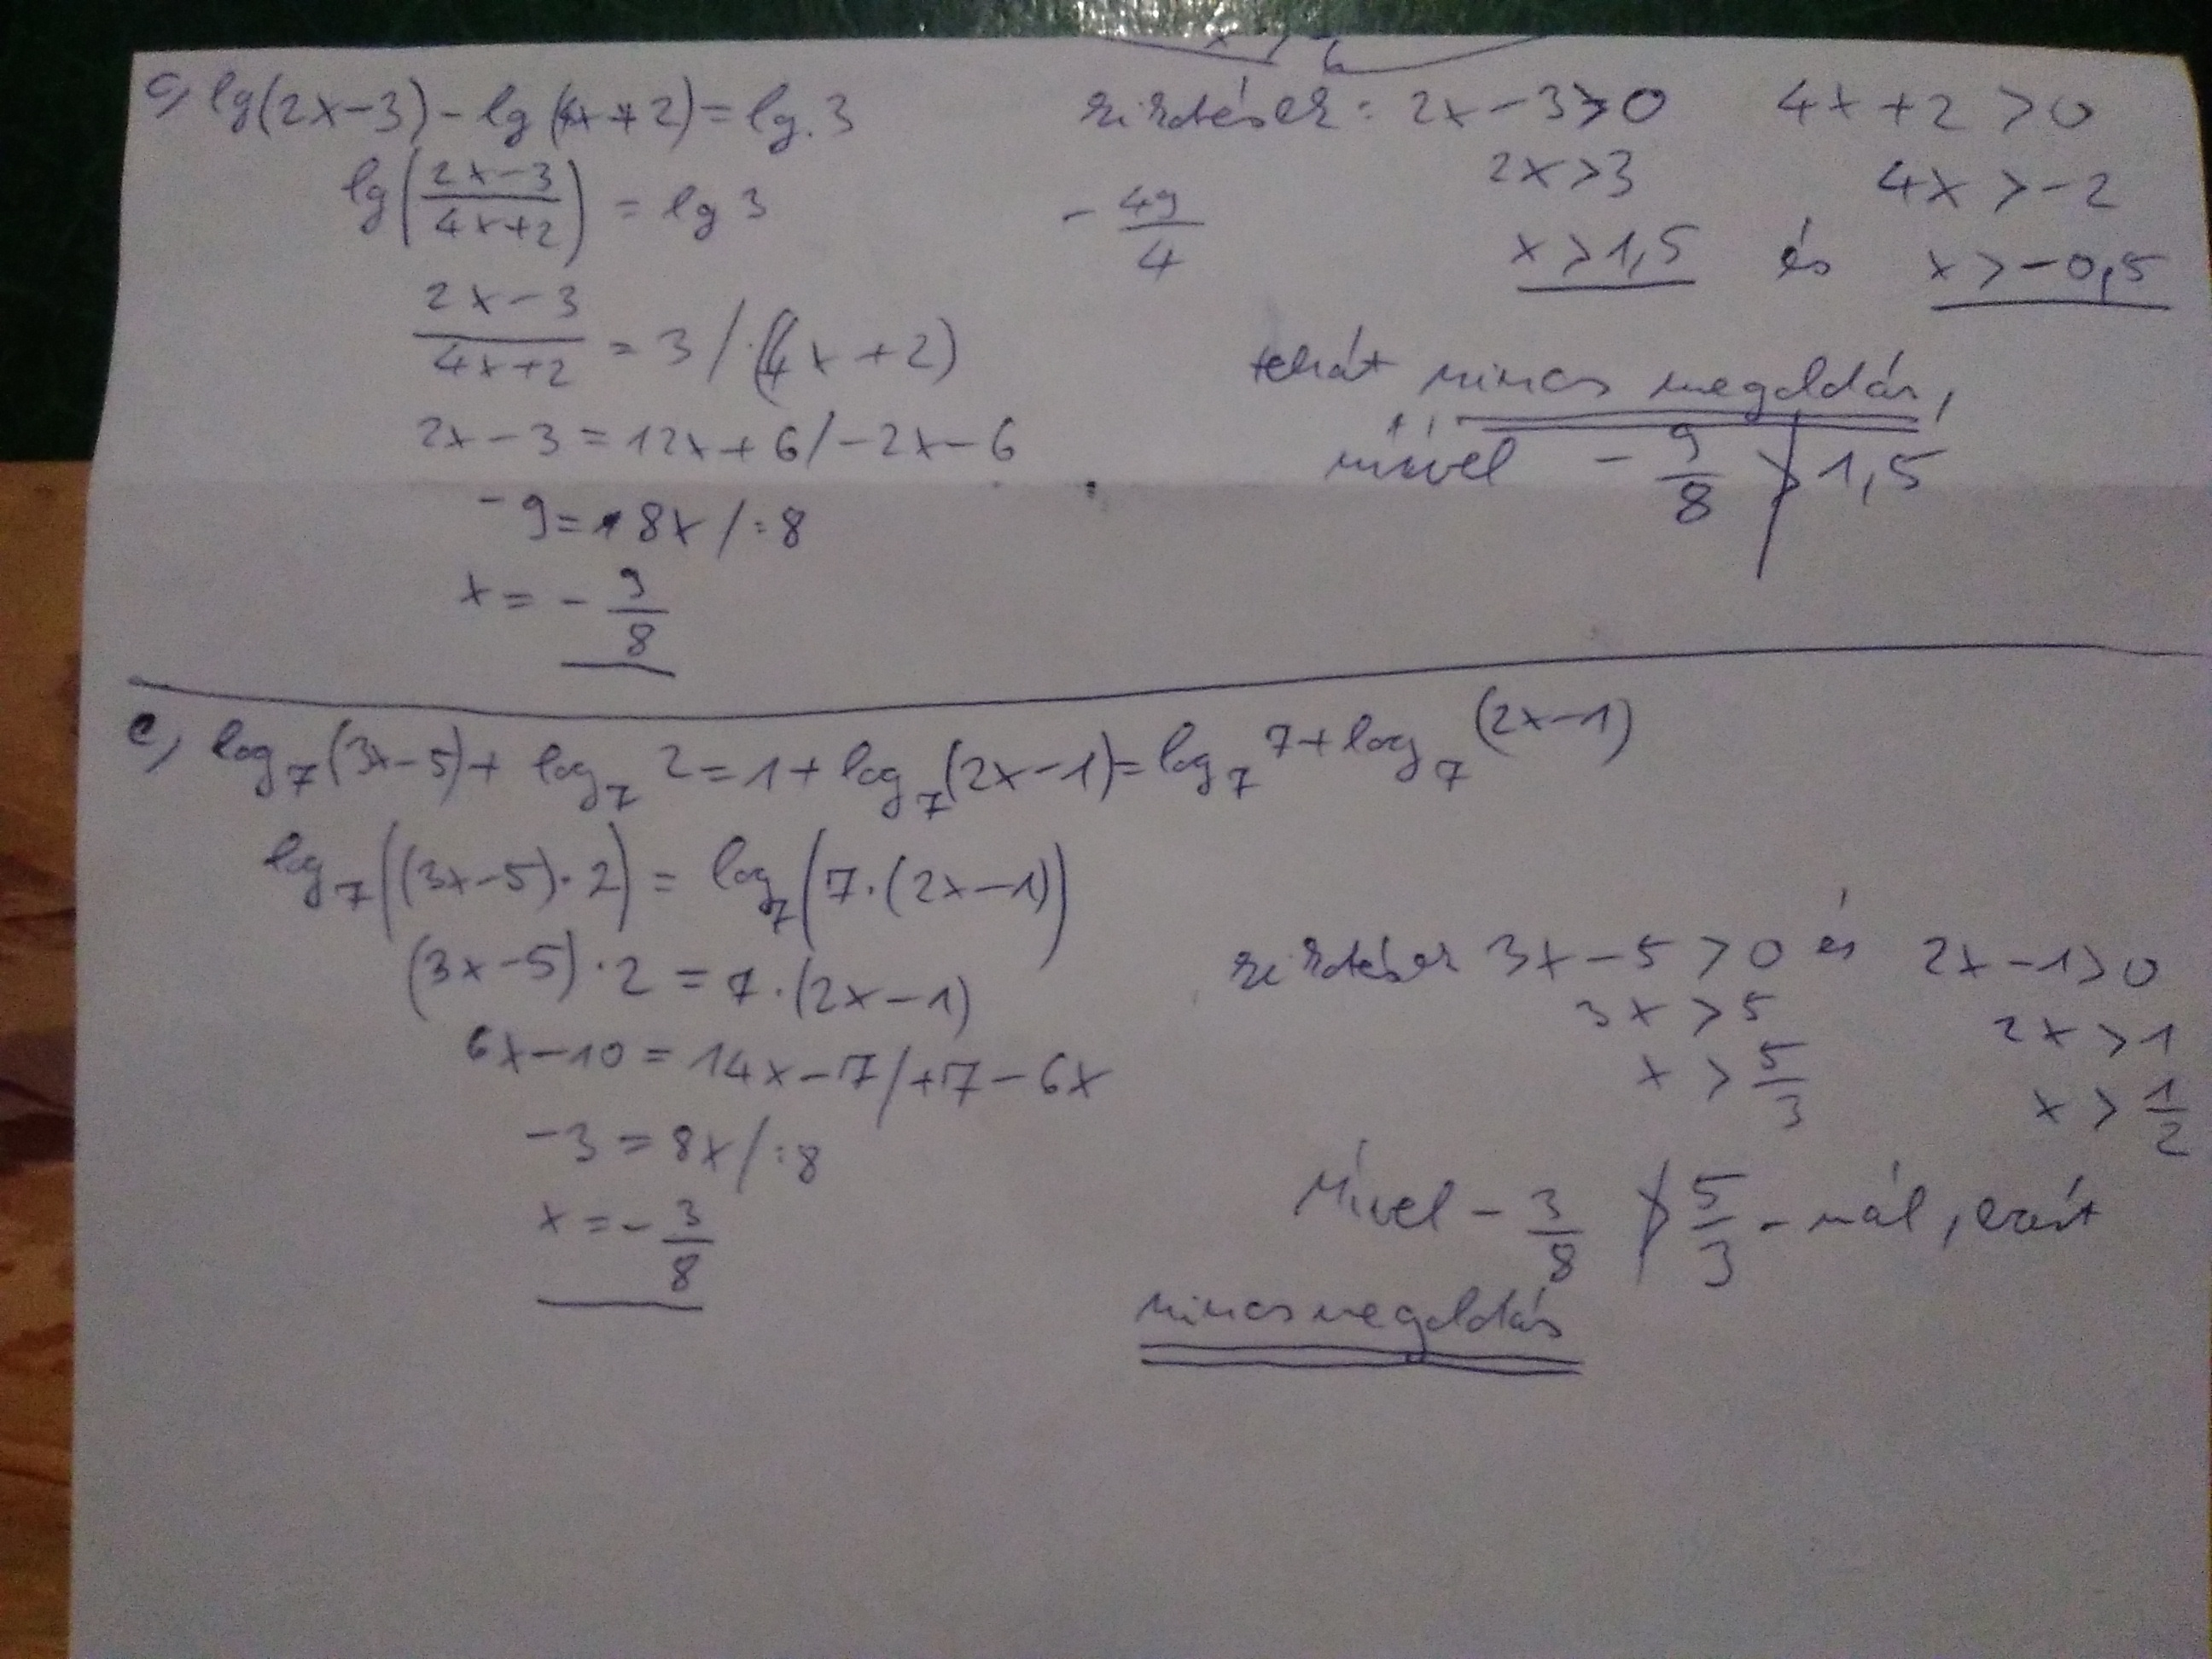 c, lg(2x-3)-lg(4x+2)=lg.3
lg((2x-3)/(4x+2)) = lg 3
(2x-3)/(4x+2) = 3 /·(4x+2)
2x-3=12x+6/-2x-6
-9=18x/:8
x=-9/8
-49/4
kikötések: 2x-3>0 4x+2>0
2x>3 4x>-2
x>1,5 és x>-0,5
tehát nincs megoldás,
mivel -9/8 ≯ 1,5
e, log₇(3x-5)+log₇2=1+log₇(2x-1)=log₇7+log₇(2x-1)
log₇((3x-5)·2)=log₇(7·(2x-1))
(3x-5)·2=7·(2x-1)
6x-10=14x-7/+7-6x
-3=8x/:8
x=-3/8
kikötések 3x-5>0 és 2x-1>0
3x>5 2x>1
x>5/3 x>1/2
Mivel -3/8 ≯ 5/3-nál, ezért
nincs megoldás